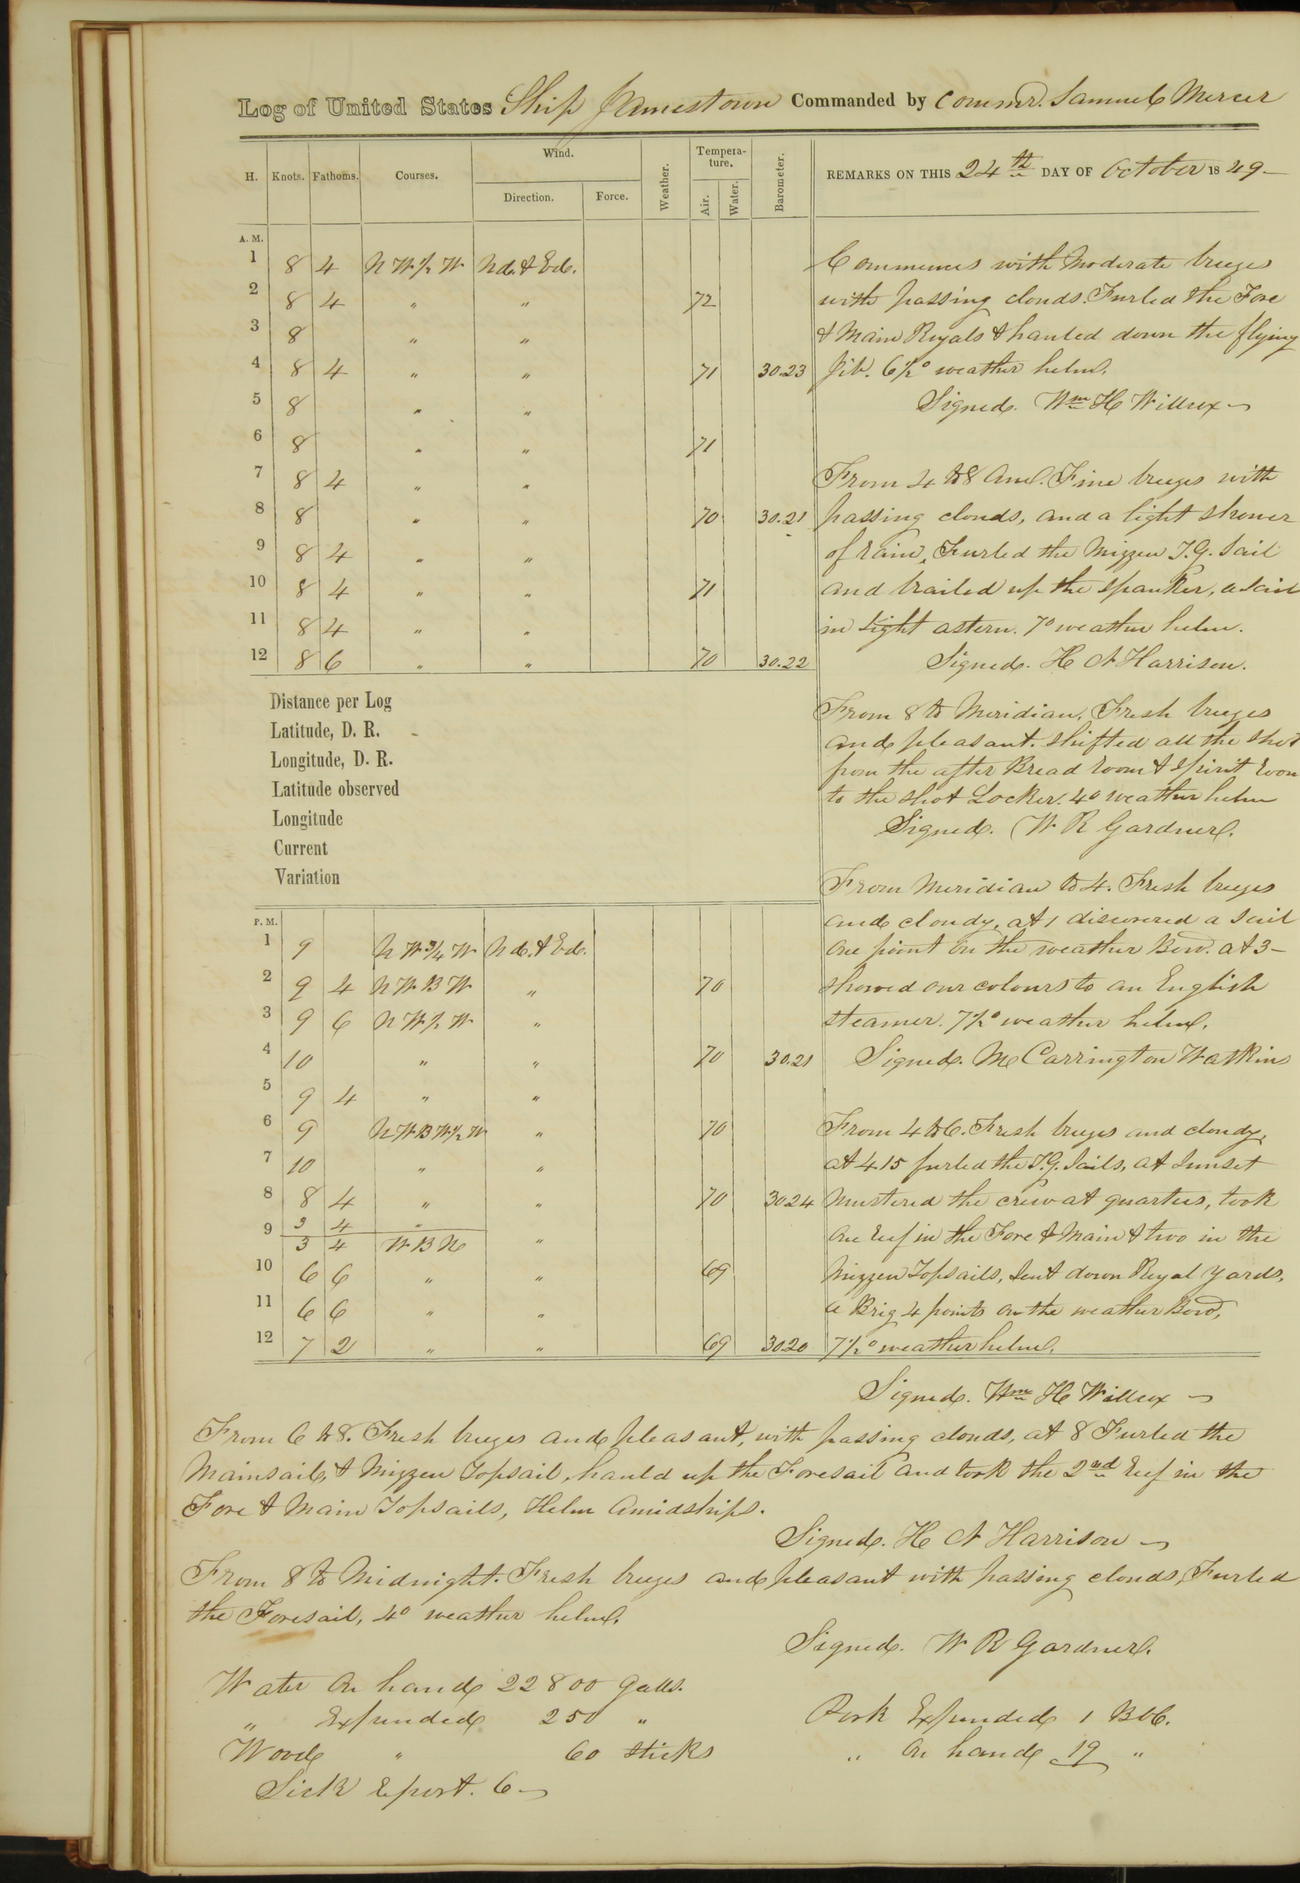 Log of United States Ship Jamestown Commanded by Commr. Samuel Mercer
H. Knots. Fathoms. Courses. Wind. Direction. Force. Weather. Tempera-ture. Air. Water. Barometer.
REMARKS ON THIS 24th DAY OF October 1849
A. M.
1 8 4 N W ½ W Nd. & Ed.
2 8 4 " " 72
3 8 " "
4 8 4 " " 71 30.23
5 8 " "
6 8 " " 71
7 8 4 " "
8 8 " " 70 30.21
9 8 4 " "
10 8 4 " " 71
11 8 4 " "
12 8 6 " " 70 30.22
Commences with Moderate breezes
with passing clouds. Furled the Fore
& Main Royals & hauled down the flying
Jib. 6½° weather helm.
Signed. Wm H Willcox
From 4 to 8 Am. Fine breezes with
passing clouds, and a light shower
of rain, Furled the Mizzen T.G. Sail
and brailed up the Spanker, a Sail
in sight astern. 7° weather helm.
Signed. H N Harrison.
From 8 to Meridian. Fresh breezes
and pleasant. Shifted all the shot
from the after Bread room & Spirit room
to the shot Locker. 4° weather helm
Signed. W R Gardner.
Distance per Log
Latitude, D. R.
Longitude, D. R.
Latitude observed
Longitude
Current
Variation
P. M.
1 9 N W ¾ W Nd. & Ed.
2 9 4 N W B W " 70
3 9 6 N W ½ W "
4 10 " " 70 30.21
5 9 4 " "
6 9 N W B W ½ W " 70
7 10 " "
8 8 4 " " 70 30.24
9 3 4 "
3 4 W B N "
10 6 6 " " 69
11 6 6 " "
12 7 2 " " 69 30.20
From Meridian to 4. Fresh breezes
and cloudy, at 1 discovered a Sail
one point on the weather Bow. at 3
showed our colours to an English
steamer. 7½° weather helm.
Signed. M Carrington Watkins
From 4 to 6. Fresh breezes and cloudy,
at 4.15 furled the T.G. Sails, at Sunset
mustered the crew at quarters, took
one reef in the Fore & Main & two in the
Mizzen Topsails, Sent down Royal Yards,
a Brig 4 points on the weather Bow,
7½° weather helm.
Signed. Wm H Willcox
From 6 to 8. Fresh breezes and pleasant, with passing clouds, at 8 Furled the
Mainsail, & Mizzen Topsail, hauld up the Foresail and took the 2nd reef in the
Fore & Main Topsails, Helm Amidships.
Signed. H N Harrison
From 8 to Midnight. Fresh breezes and pleasant with passing clouds, Furled
the Foresail, 4° weather helm.
Signed. W R Gardner.
Water on hand 22800 Galls.
" Expended 250 "
Wood " 60 sticks
Sick report. 6
Pork Expended 1 Bbl.
" On hand 19 "